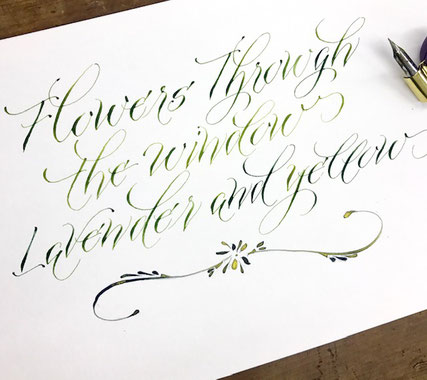 Flowers Through
the window
Lavender and yellow